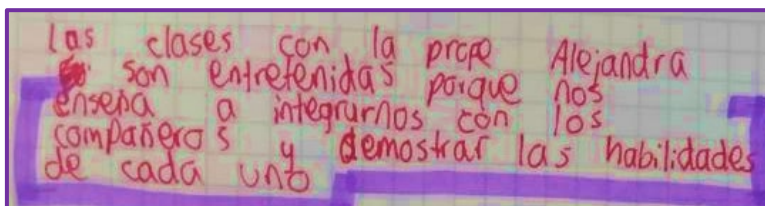 Las clases con la profe Alejandra
son entretenidas porque nos
enseña a integrarnos con los
compañeros y demostrar las habilidades
de cada uno